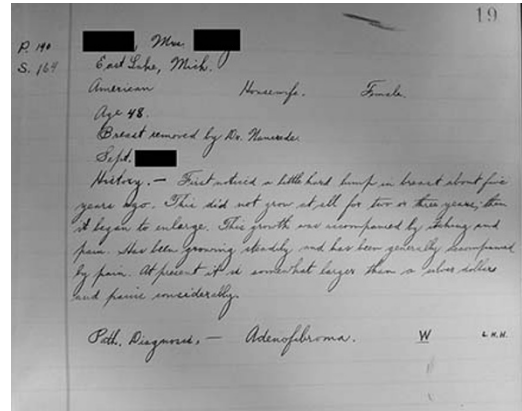 19
P. 190
S. 164
, Mrs.
East Lake, Mich.
American Housewife. Female.
Age 48.
Breast removed by Dr. Nancrede.
Sept.
History. — First noticed a little hard lump in breast about five
years ago. This did not grow at all for two or three years, then
it began to enlarge. This growth was accompanied by itching and
pain. Has been growing steadily and has been generally accompanied
by pain. At present it is somewhat larger than a silver dollar
and pains considerably.
Path. Diagnosis. — Adenofibroma. W L.H.H.